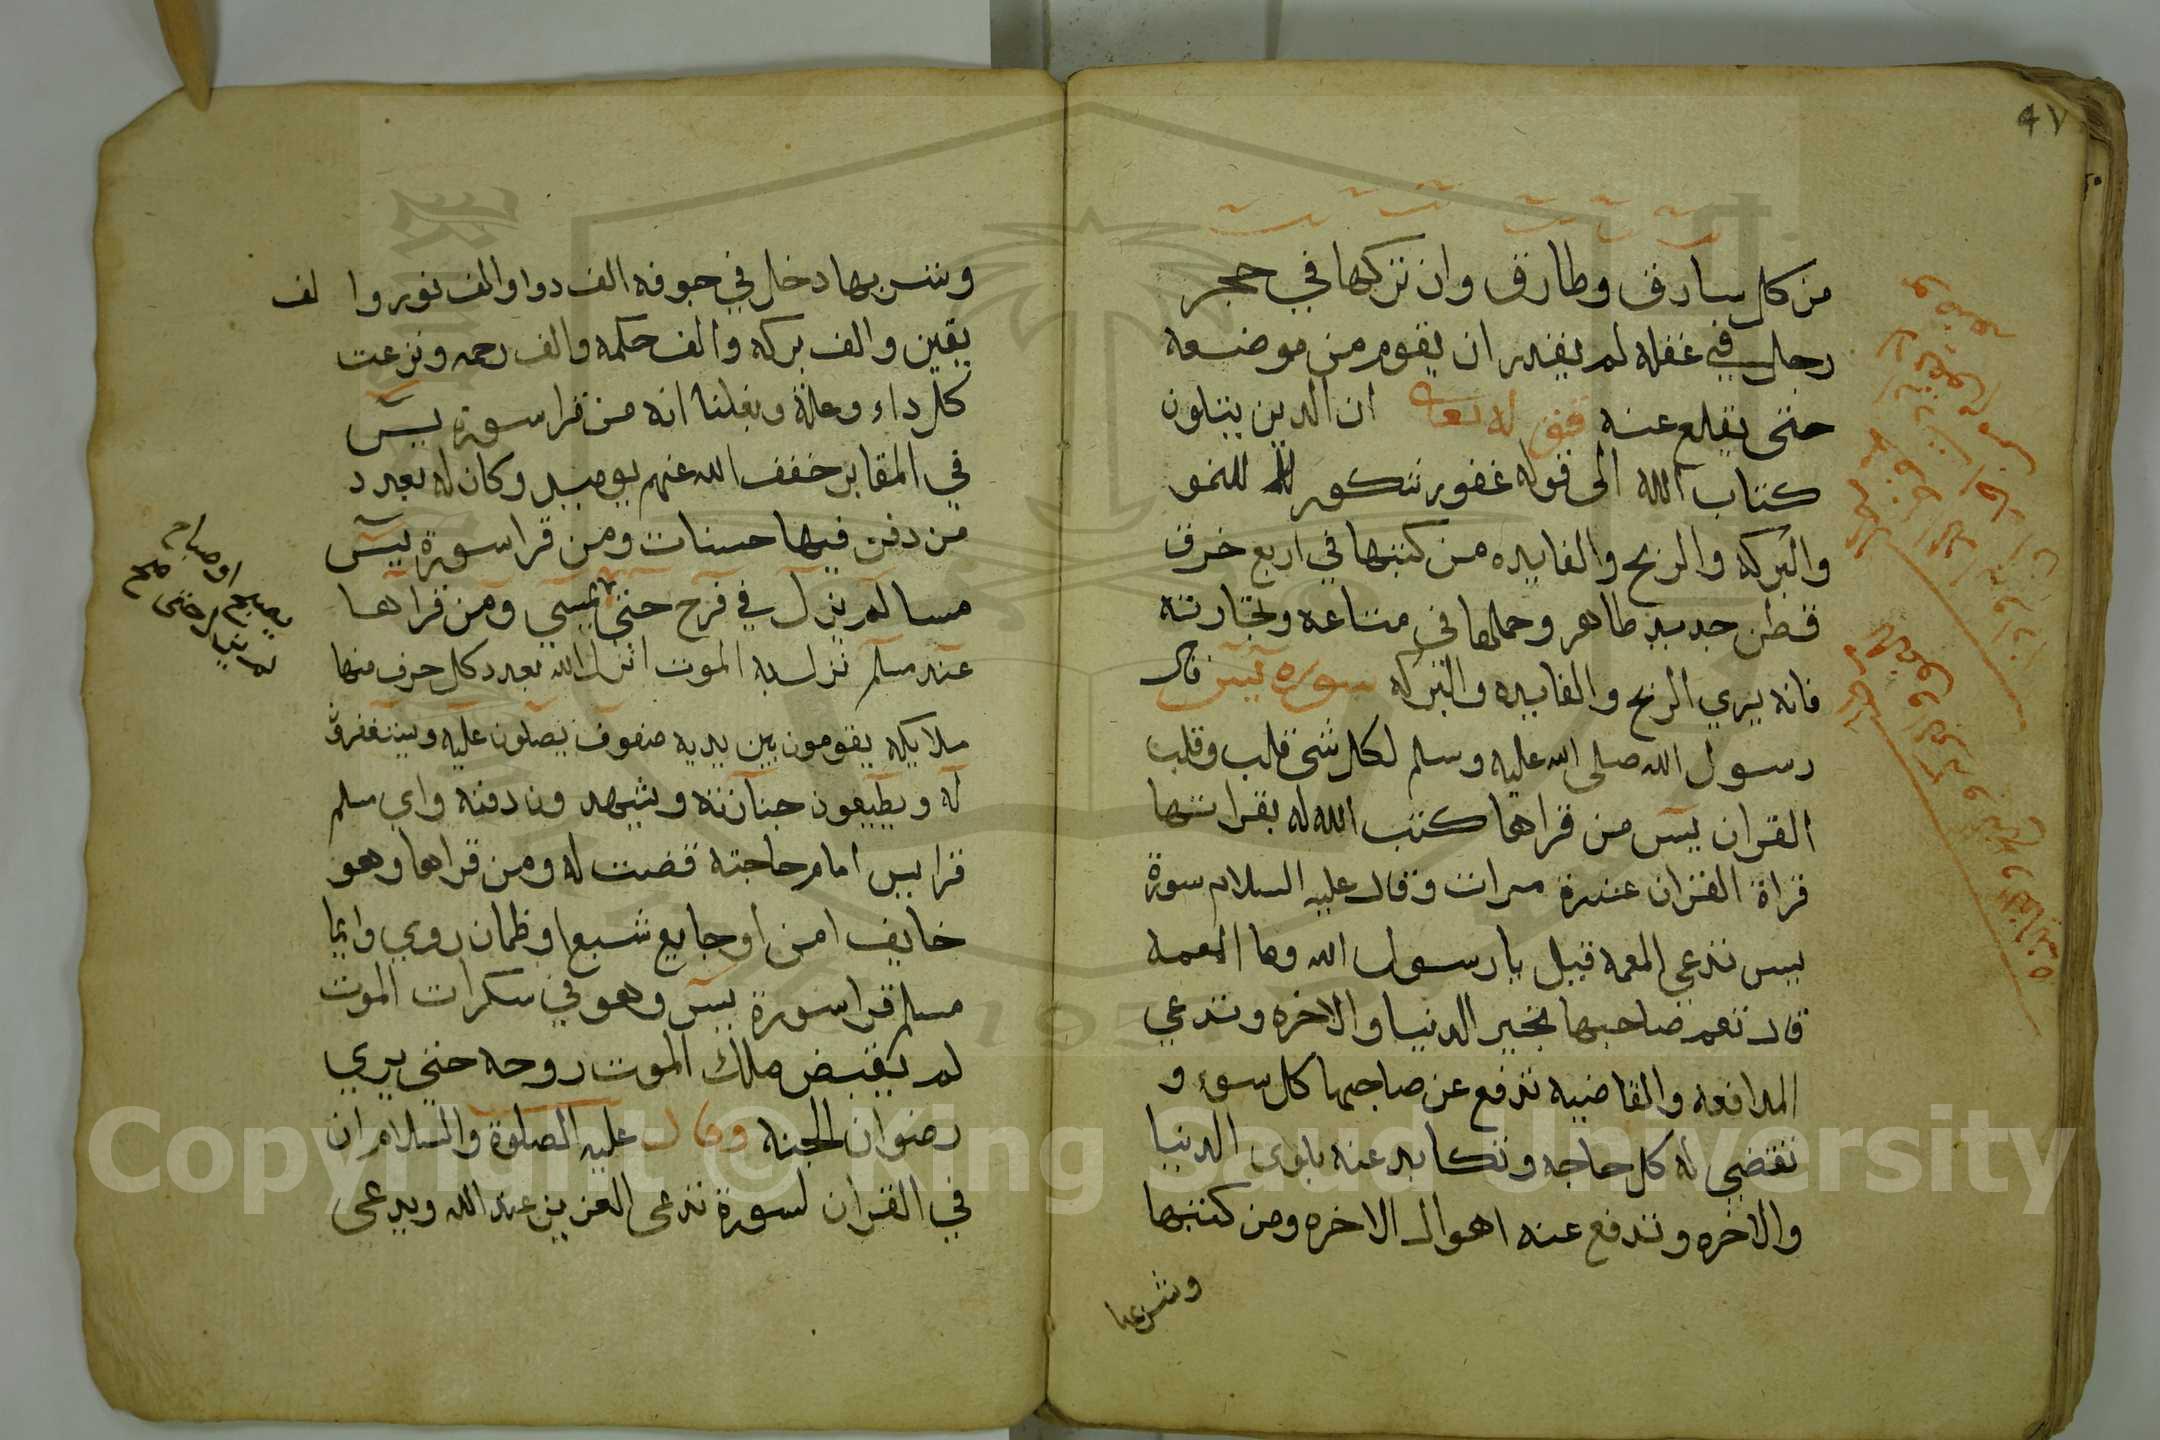 ٤٧
من كل سارق وطارق وان تركها في حجر
رجل في غفله لم يقدر ان يقوم من موضعه
حتى يقلع عنه قوله تعالى ان الذين يتلون
كتاب الله الى قوله غفور شكور للنمو
والبركه والربح والفايده من كتبها في اربع خرق
قطن جديد طاهر وحملها في متاعه وتجارته
فانه يري الربح والفايده والبركه سورة يس قال
رسول الله صلى الله عليه وسلم لكل شي قلب وقلب
القران يس من قراها كتب الله له بقراتها
قراة القران عشرة مرات وقال عليه السلام سورة
يس تدعي المعمه قيل يا رسول الله وما المعمه
قال تعم صاحبها بخير الدنيا والاخره وتدعي
المدافعه والقاضيه تدفع عن صاحبها كل سوء و
تقضي له كل حاجه وتكابد عنه بلوى الدنيا
والاخره وتدفع عنه اهوال الاخره ومن كتبها
وشربها
وشربها دخل في جوفه الف دوا والف نور والف
يقين والف بركه والف حكمه والف رحمه ونزعت
كل داء وعلة وبغلنا انه من قرا سورة يس
في المقابر خفف الله عنهم يوميد وكان له بعدد
من دفن فيها حسنات ومن قرا سورة يس
مسا لم يزل في فرح حتى يمسي ومن قراها
عند مسلم نزل به الموت انزل الله بعدد كل حرف منها
ملايكه يقومون بين يديه صفوف يصلون عليه ويستغفرون
له ويطيعون جنازته ويشهدون دفنه واي مسلم
قرا يس امام حاجته قضت له ومن قراها وهو
خايف امن او جايع شبع او ظمان روي وايما
مسلم قرا سورة يس وهو في سكرات الموت
لم يقبض ملك الموت روحه حتى يري
رضوان الجنه وقال عليه الصلوة والسلام ان
في القران لسورة تدعى العزيز عند الله ويدعى
Copyright © King Saud University